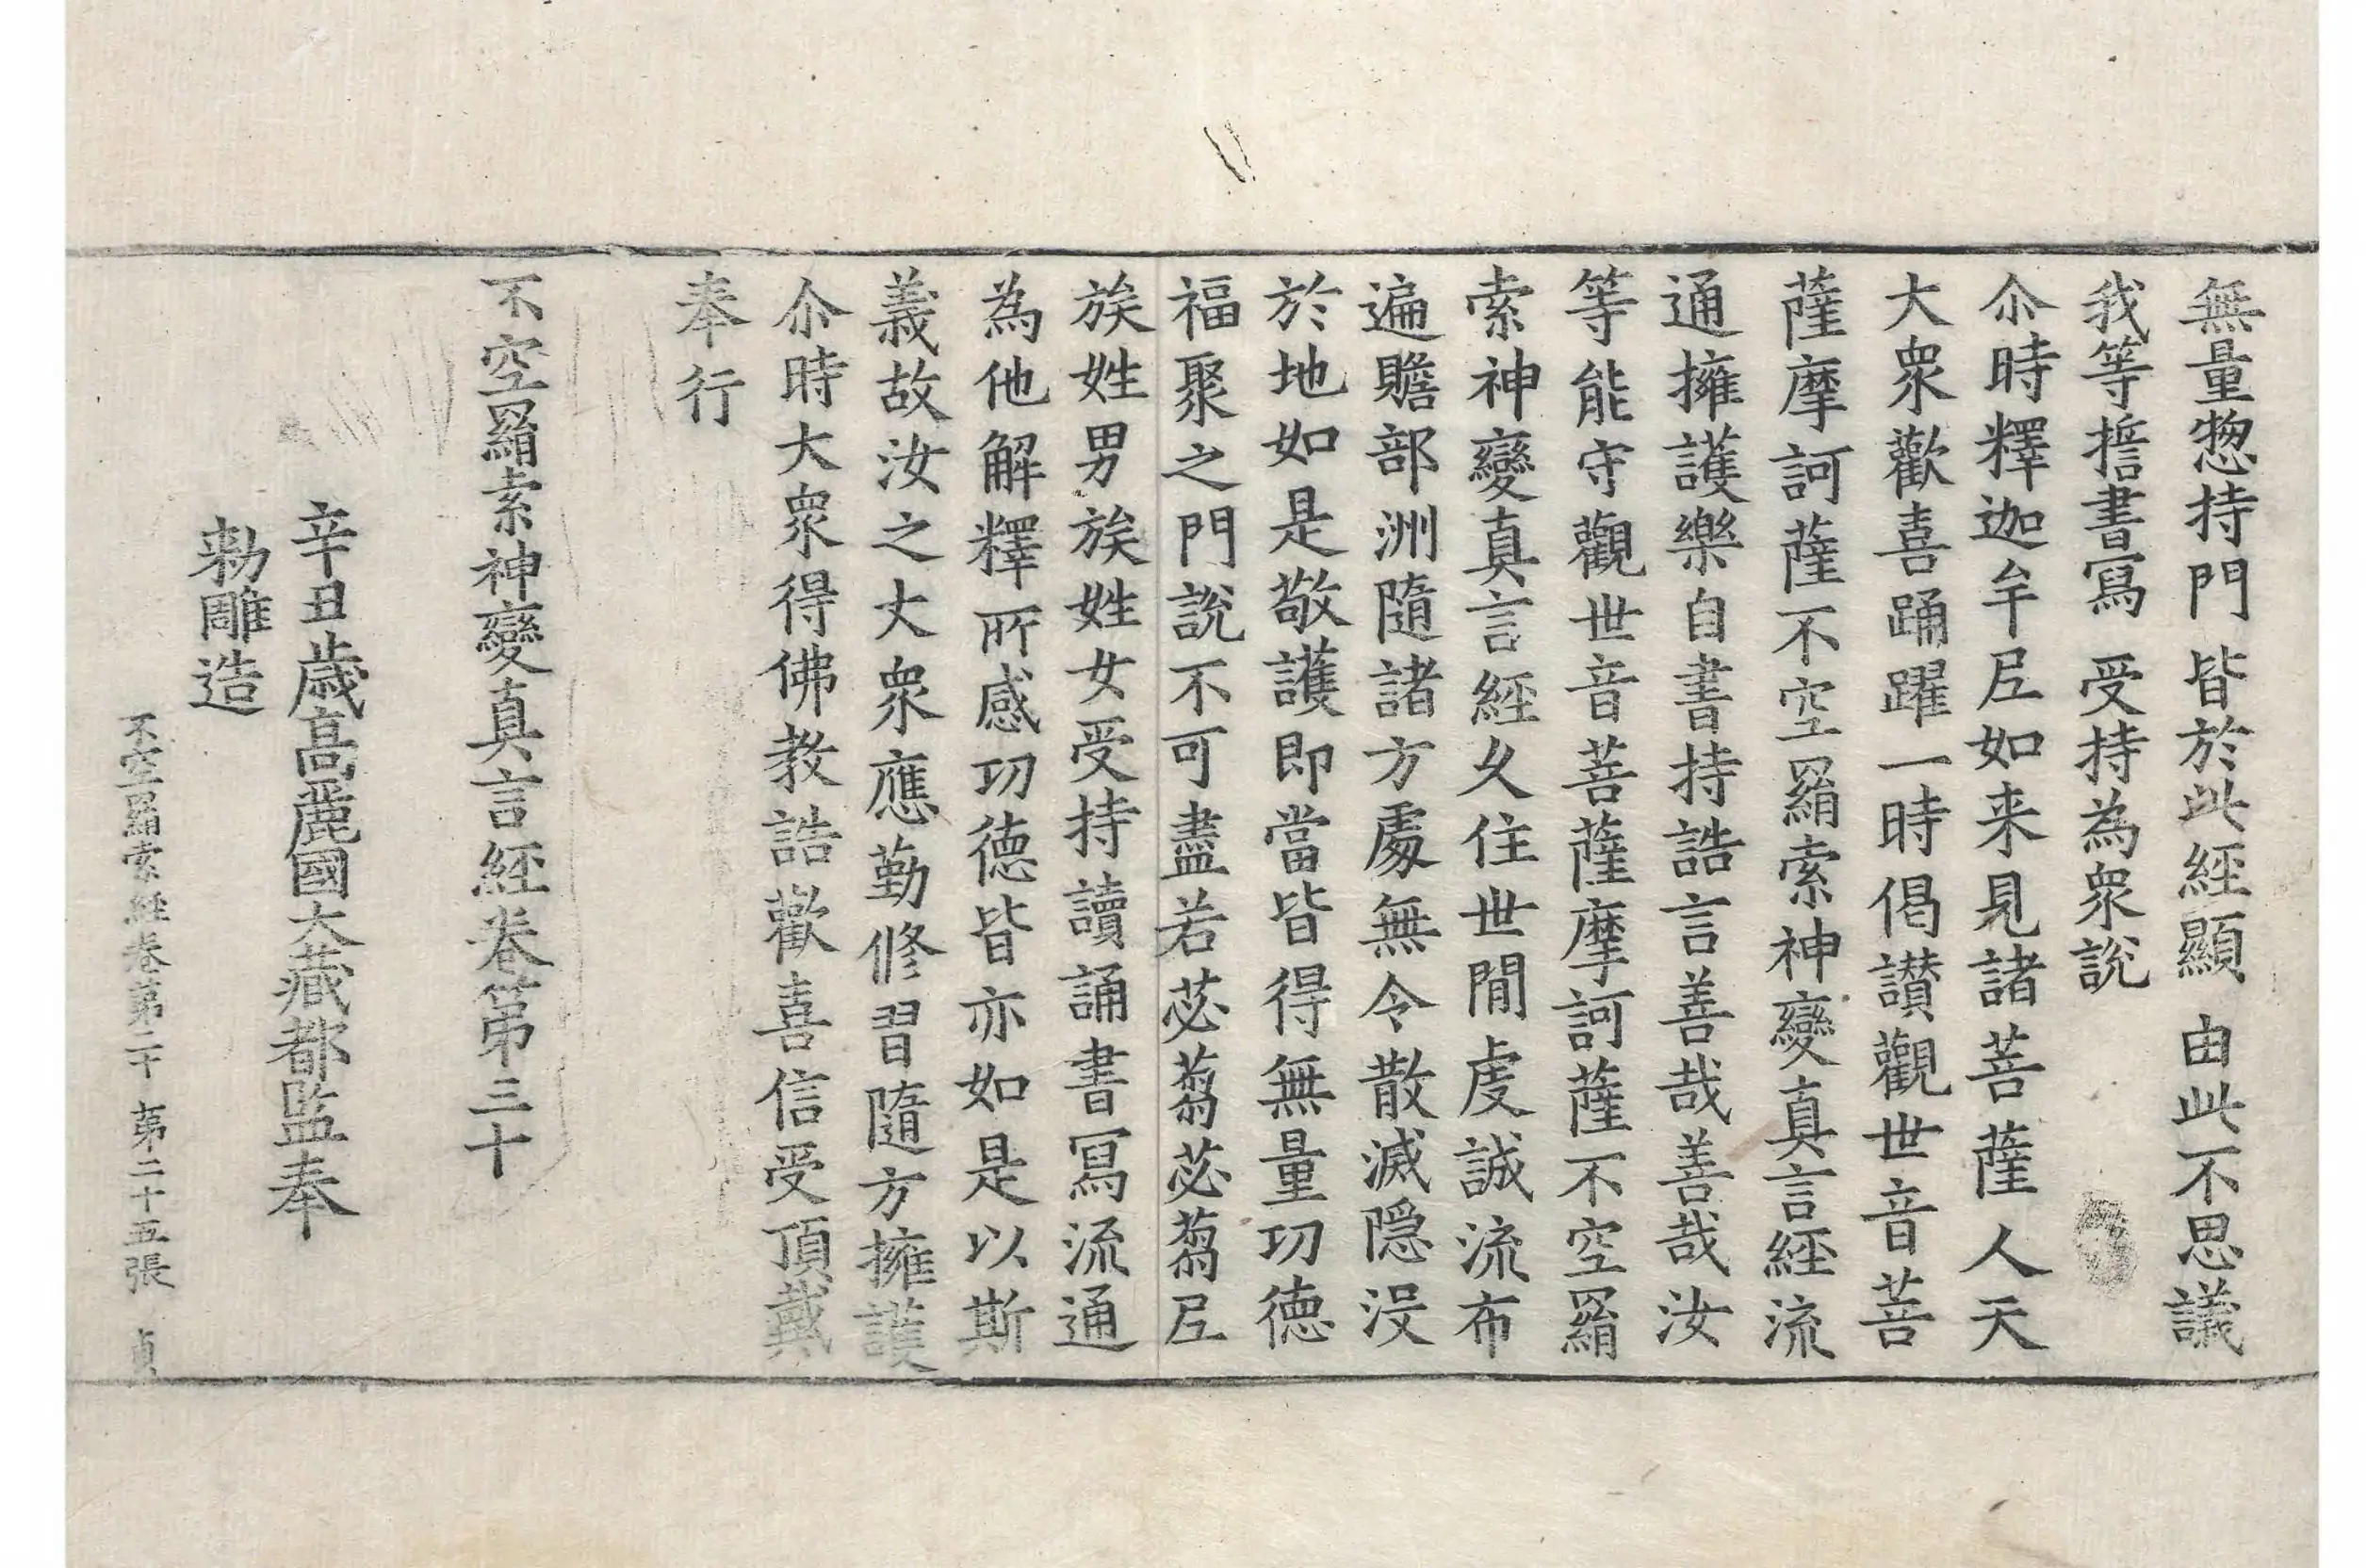 無量惣持門 皆於此經顯 由此不思議
我等擔書寫 受持為衆說
尒時釋迦牟𡰱如来見諸菩薩人天
大衆歡喜踊躍一時偈讃觀世音菩
薩摩訶薩不空羂索神變真言經流
通擁護樂自書持誥言善哉善哉汝
等能守觀世音菩薩摩訶薩不空羂
索神變真言經久住世閒虔誠流布
遍贍部洲隨諸方處無令散滅隱没
於地如是敬護即當皆得無量功德
福聚之門說不可盡若苾蒭苾蒭𡰱
族姓男族姓女受持讀誦書寫流通
為他解釋所感功德皆亦如是以斯
義故汝之大衆應勤修習隨方擁護
尒時大衆得佛教誥歡喜信受頂戴
奉行
不空羂索神變真言經卷第三十
辛丑歲高麗國大藏都監奉
勅雕造
不空羂索經卷第三十 第二十五張 貞